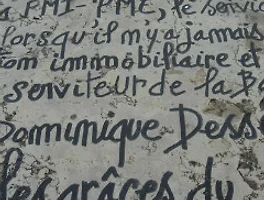 PMI-PME, le servic
lorsqu'il m'y a jamais
om immobiliaire et
serviteur de la Ba
Dominique Dess
les grâces du